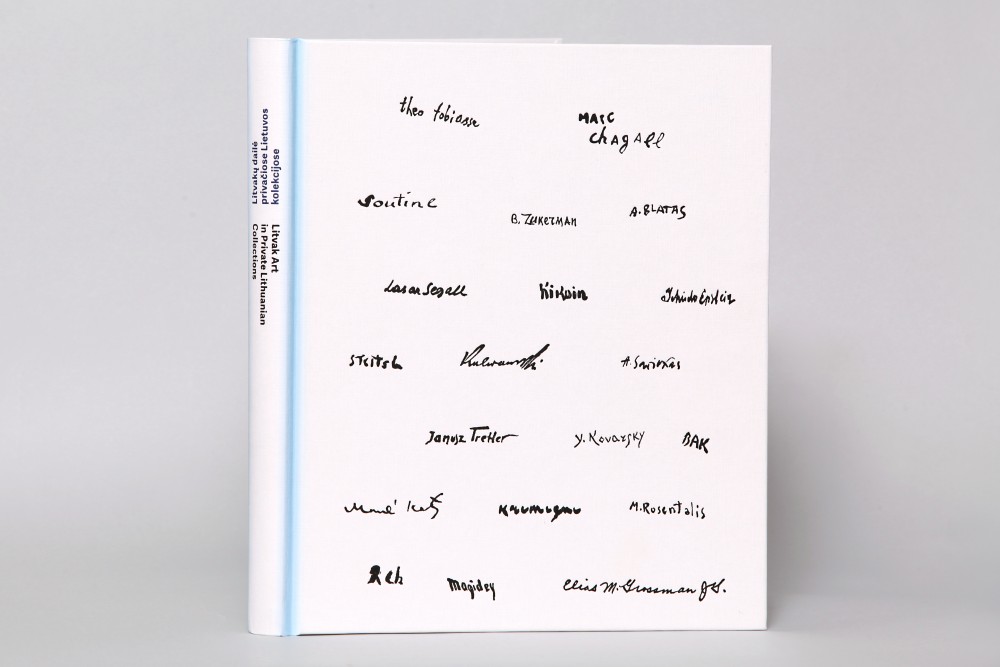 Litvakų dailė
privačiose Lietuvos
kolekcijose
Litvak Art
in Private Lithuanian
Collections
theo tobiasse
MARC
chagall
Soutine
B. Zukerman
A. BLATAS
Lasar Segall
Kikoin
Jehudo Epstein
Janusz Tretler
y. Kovarsky
BAK
Mané Katz
M. Rosentalis
Magidey
Elias M. Grossman